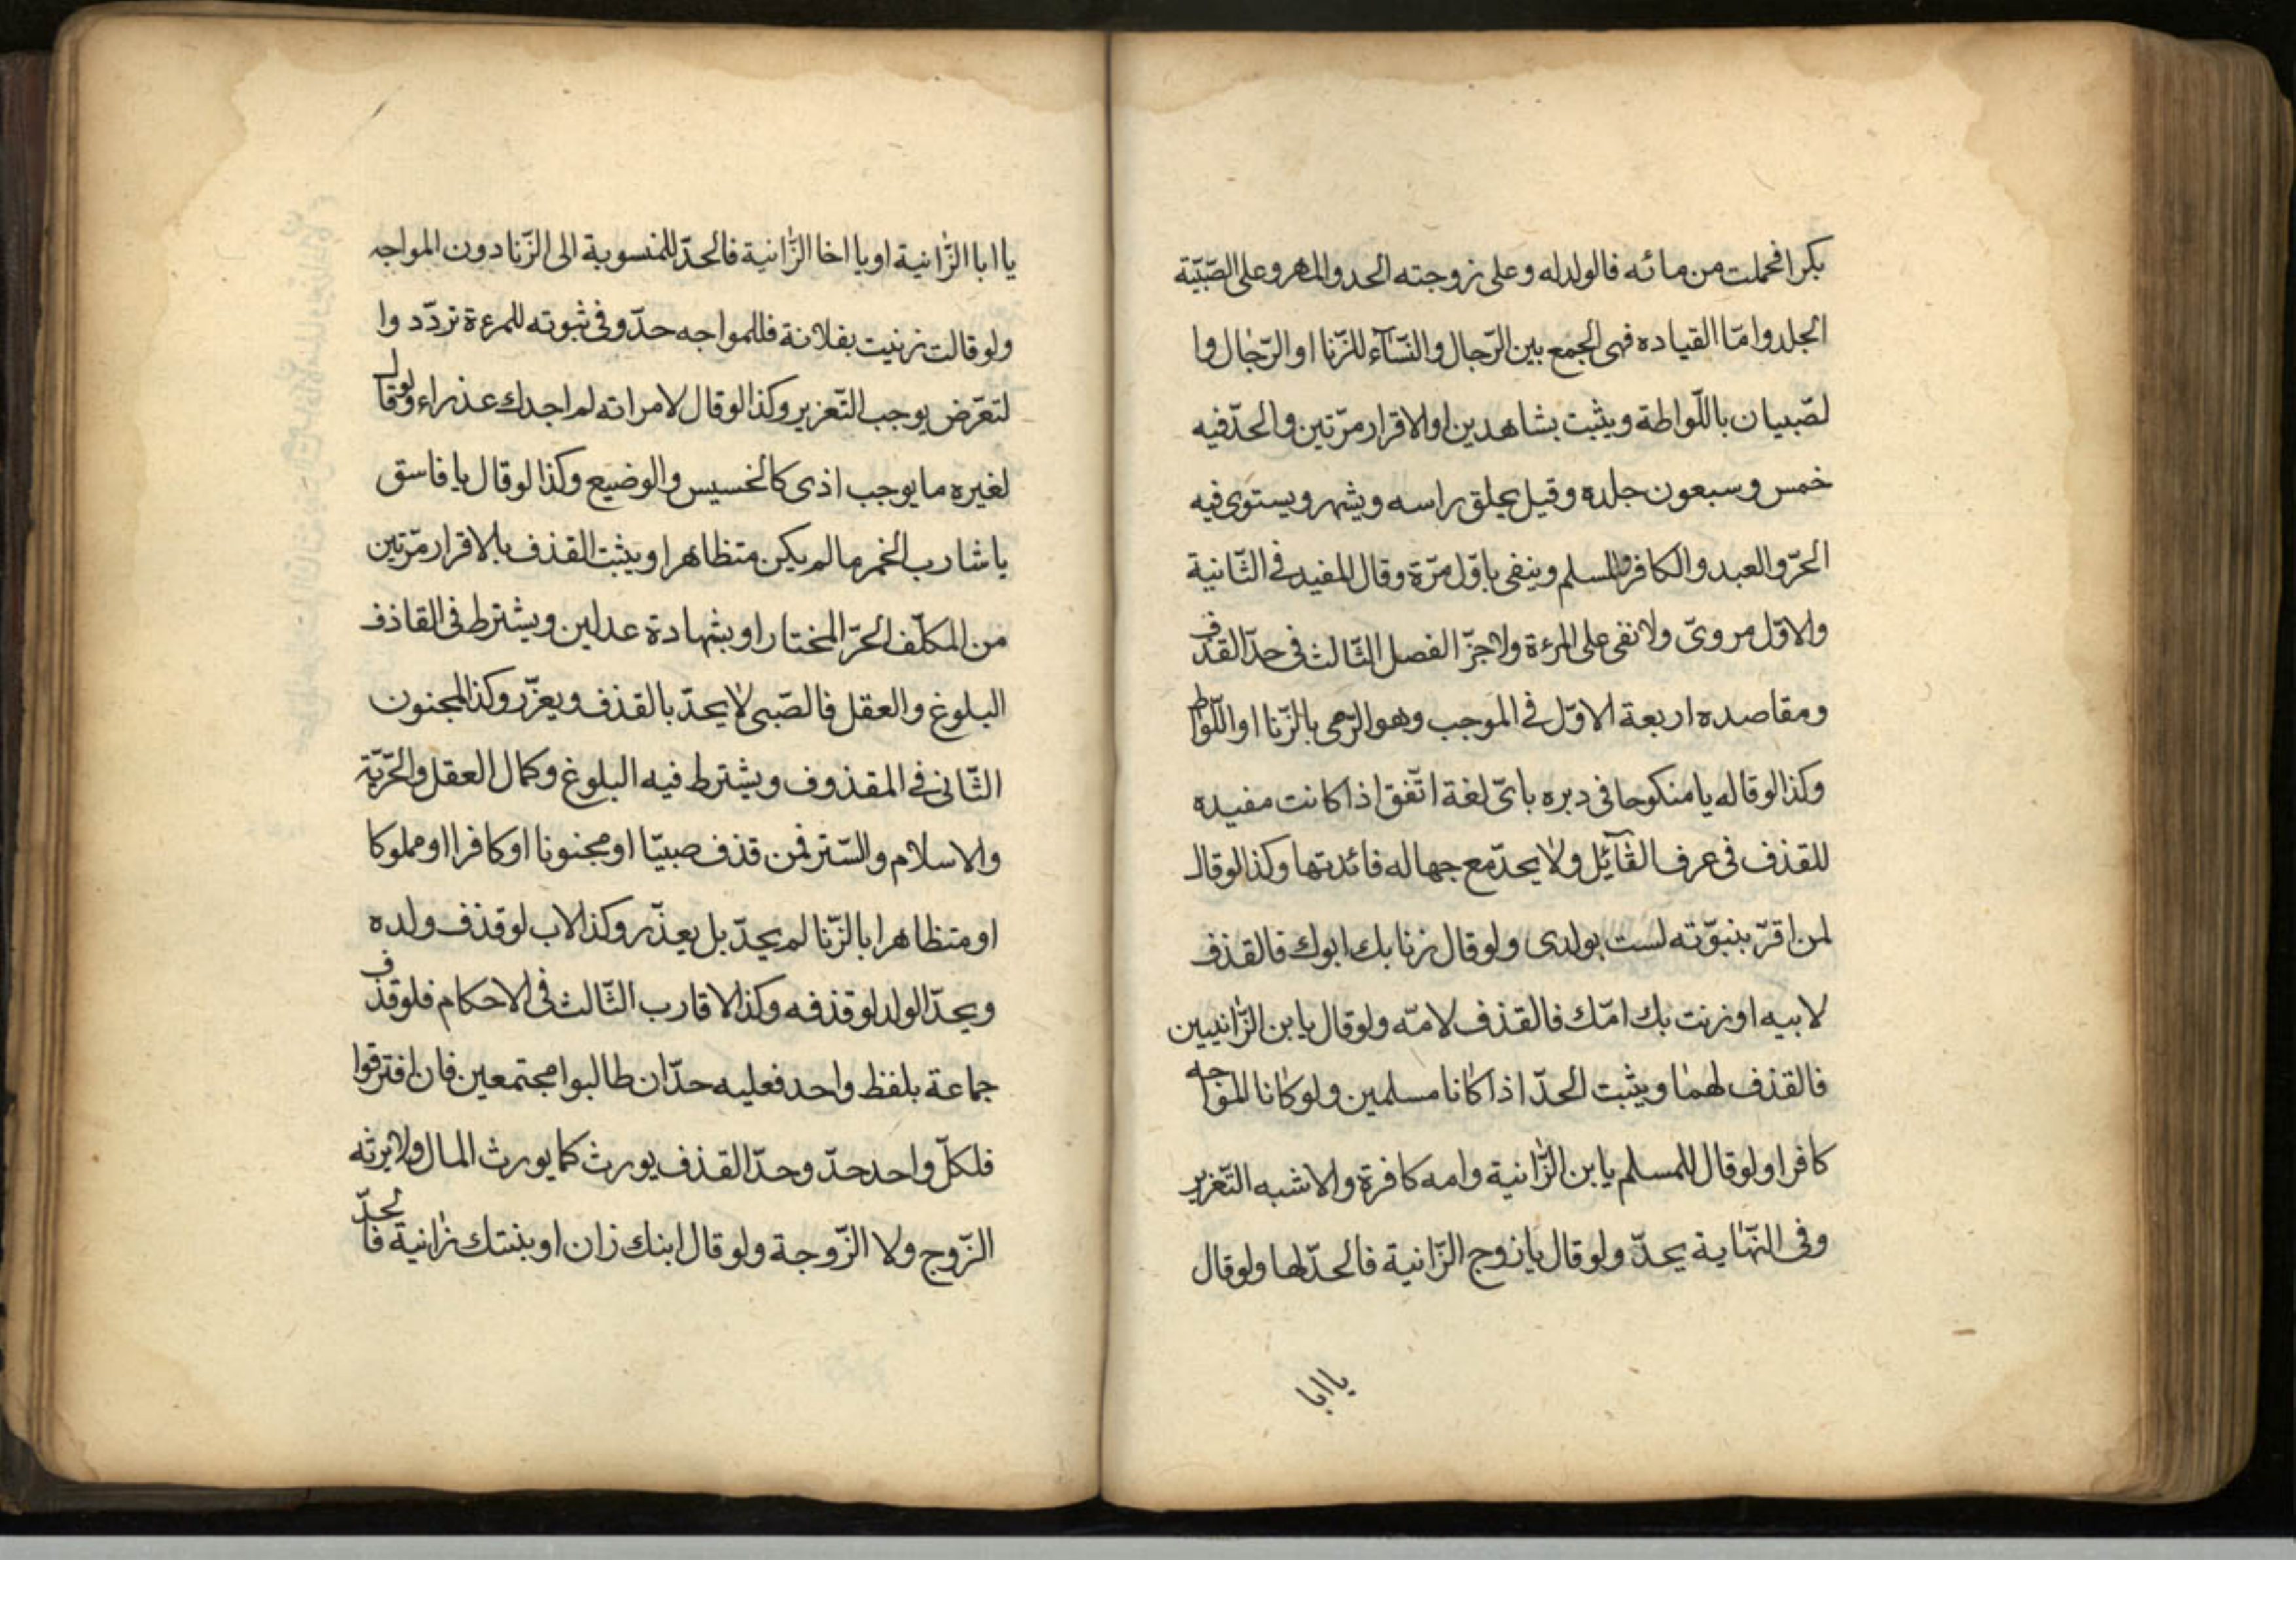 بكرا فحملت من مائه فالولد له وعلى زوجته الحد والمهر وعلى الصّبيّة
الجلد وامّا القياده فهى الجمع بين الرّجال والنّسآء للزّنا او الرّجال وا
لصّبيان باللّواطة ويثبت بشاهدين او الاقرار مرّتين والحدّ فيه
خمس وسبعون جلده وقيل يحلق راسه ويشهر ويستوى فيه
الحرّ والعبد والكافر والمسلم وينفى باوّل مرّة وقال المفيد فى الثّانية
والاوّل مروىّ ولا نفى على المرءة ولا جزّ الفصل الثّالث فى حدّ القذف
ومقاصده اربعة الاوّل فى الموجب وهو الرّمى بالزّنا او اللّواط
وكذا لو قال له يا منكوحا فى دبره باىّ لغة اتّفق اذا كانت مفيده
للقذف فى عرف القآئل ولا يحدّ مع جهاله فائدتها وكذا لو قال
لمن اقرّ ببنوّته لست بولدى ولو قال زنا بك ابوك فالقذف
لابيه او زنت بك امّك فالقذف لامّه ولو قال يا بن الزّانيين
فالقذف لهما ويثبت الحدّ اذا كانا مسلمين ولو كانا المواجه
كافرا ولو قال للمسلم يا بن الزّانية وامه كافرة والاشبه التّعزير
وفى النّهاية يحدّ ولو قال يا زوج الزّانية فالحدّ لها ولو قال
يا ابا
يا ابا الزّانية او يا اخا الزّانية فالحدّ للمنسوبة الى الزّنا دون المواجه
ولو قالت زنيت بفلانة فللمواجه حدّ وفى ثبوته للمرءة تردّد وا
لتعرّض يوجب التّعزير وكذا لو قال لامراته لم اجدك عذراء ولو قال
لغيره ما يوجب اذى كالخسيس والوضيع وكذا لو قال يا فاسق
يا شارب الخمر ما لم يكن متظاهرا ويثبت القذف بالاقرار مرّتين
من المكلّف الحرّ المختار او بشهادة عدلين ويشترط فى القاذف
البلوغ والعقل فالصّبى لا يحدّ بالقذف ويعزّر وكذا المجنون
الثّانى فى المقذوف ويشترط فيه البلوغ وكمال العقل والحرّيّة
والاسلام والسّتر فمن قذف صبيّا او مجنونا او كافرا او مملوكا
او متظاهرا بالزّنا لم يحدّ بل يعذّر وكذا الاب لو قذف ولده
ويحدّ الولد لو قذفه وكذا الاقارب الثّالث فى الاحكام فلو قذف
جماعة بلفظ واحد فعليه حدّ ان طالبوا مجتمعين فان افترقوا
فلكلّ واحد حدّ وحدّ القذف يورث كما يورث المال ولا يرثه
الزّوج ولا الزّوجة ولو قال ابنك زان او بنتك زانية فالحدّ